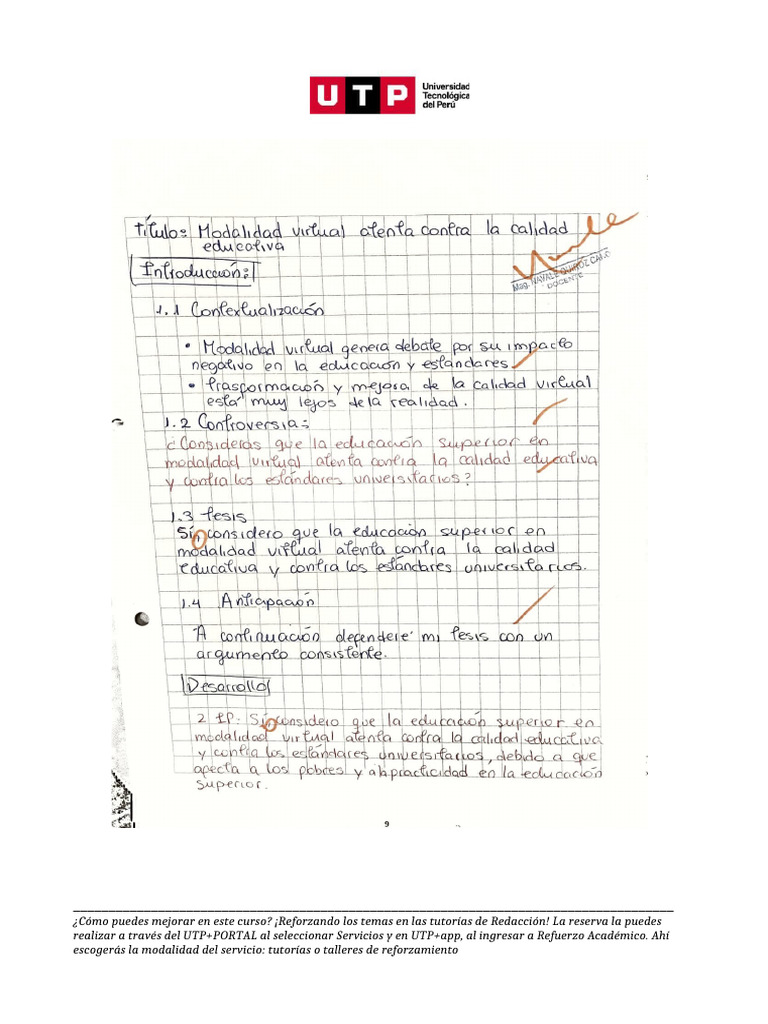 UTP Universidad
Tecnológica
del Perú
Título: Modalidad virtual atenta contra la calidad
educativa
Mag. NAVALE QUIROZ CALO
DOCENTE
Introducción:
1.1 Contextualización
• Modalidad virtual genera debate por su impacto
negativo en la educación y estándares.
• Trasformación y mejora de la calidad virtual
está muy lejos de la realidad.
1.2 Controversia:
¿Consideras que la educación superior en
modalidad virtual atenta contra la calidad educativa
y contra los estándares universitarios?
1.3 tesis
Sí considero que la educación superior en
modalidad virtual atenta contra la calidad
educativa y contra los estándares universitarios.
1.4 Anticapación
A continuación dependeré mi tesis con un
argumento consistente.
Desarrollo
2 I.P: Sí considero que la educación superior en
modalidad virtual atenta contra la calidad educativa
y contra los estándares universitarios, debido a que
apecta a los pobres y a la practicidad en la educación
Superior.
9
¿Cómo puedes mejorar en este curso? ¡Reforzando los temas en las tutorías de Redacción! La reserva la puedes
realizar a través del UTP+PORTAL al seleccionar Servicios y en UTP+app, al ingresar a Refuerzo Académico. Ahí
escogerás la modalidad del servicio: tutorías o talleres de reforzamiento